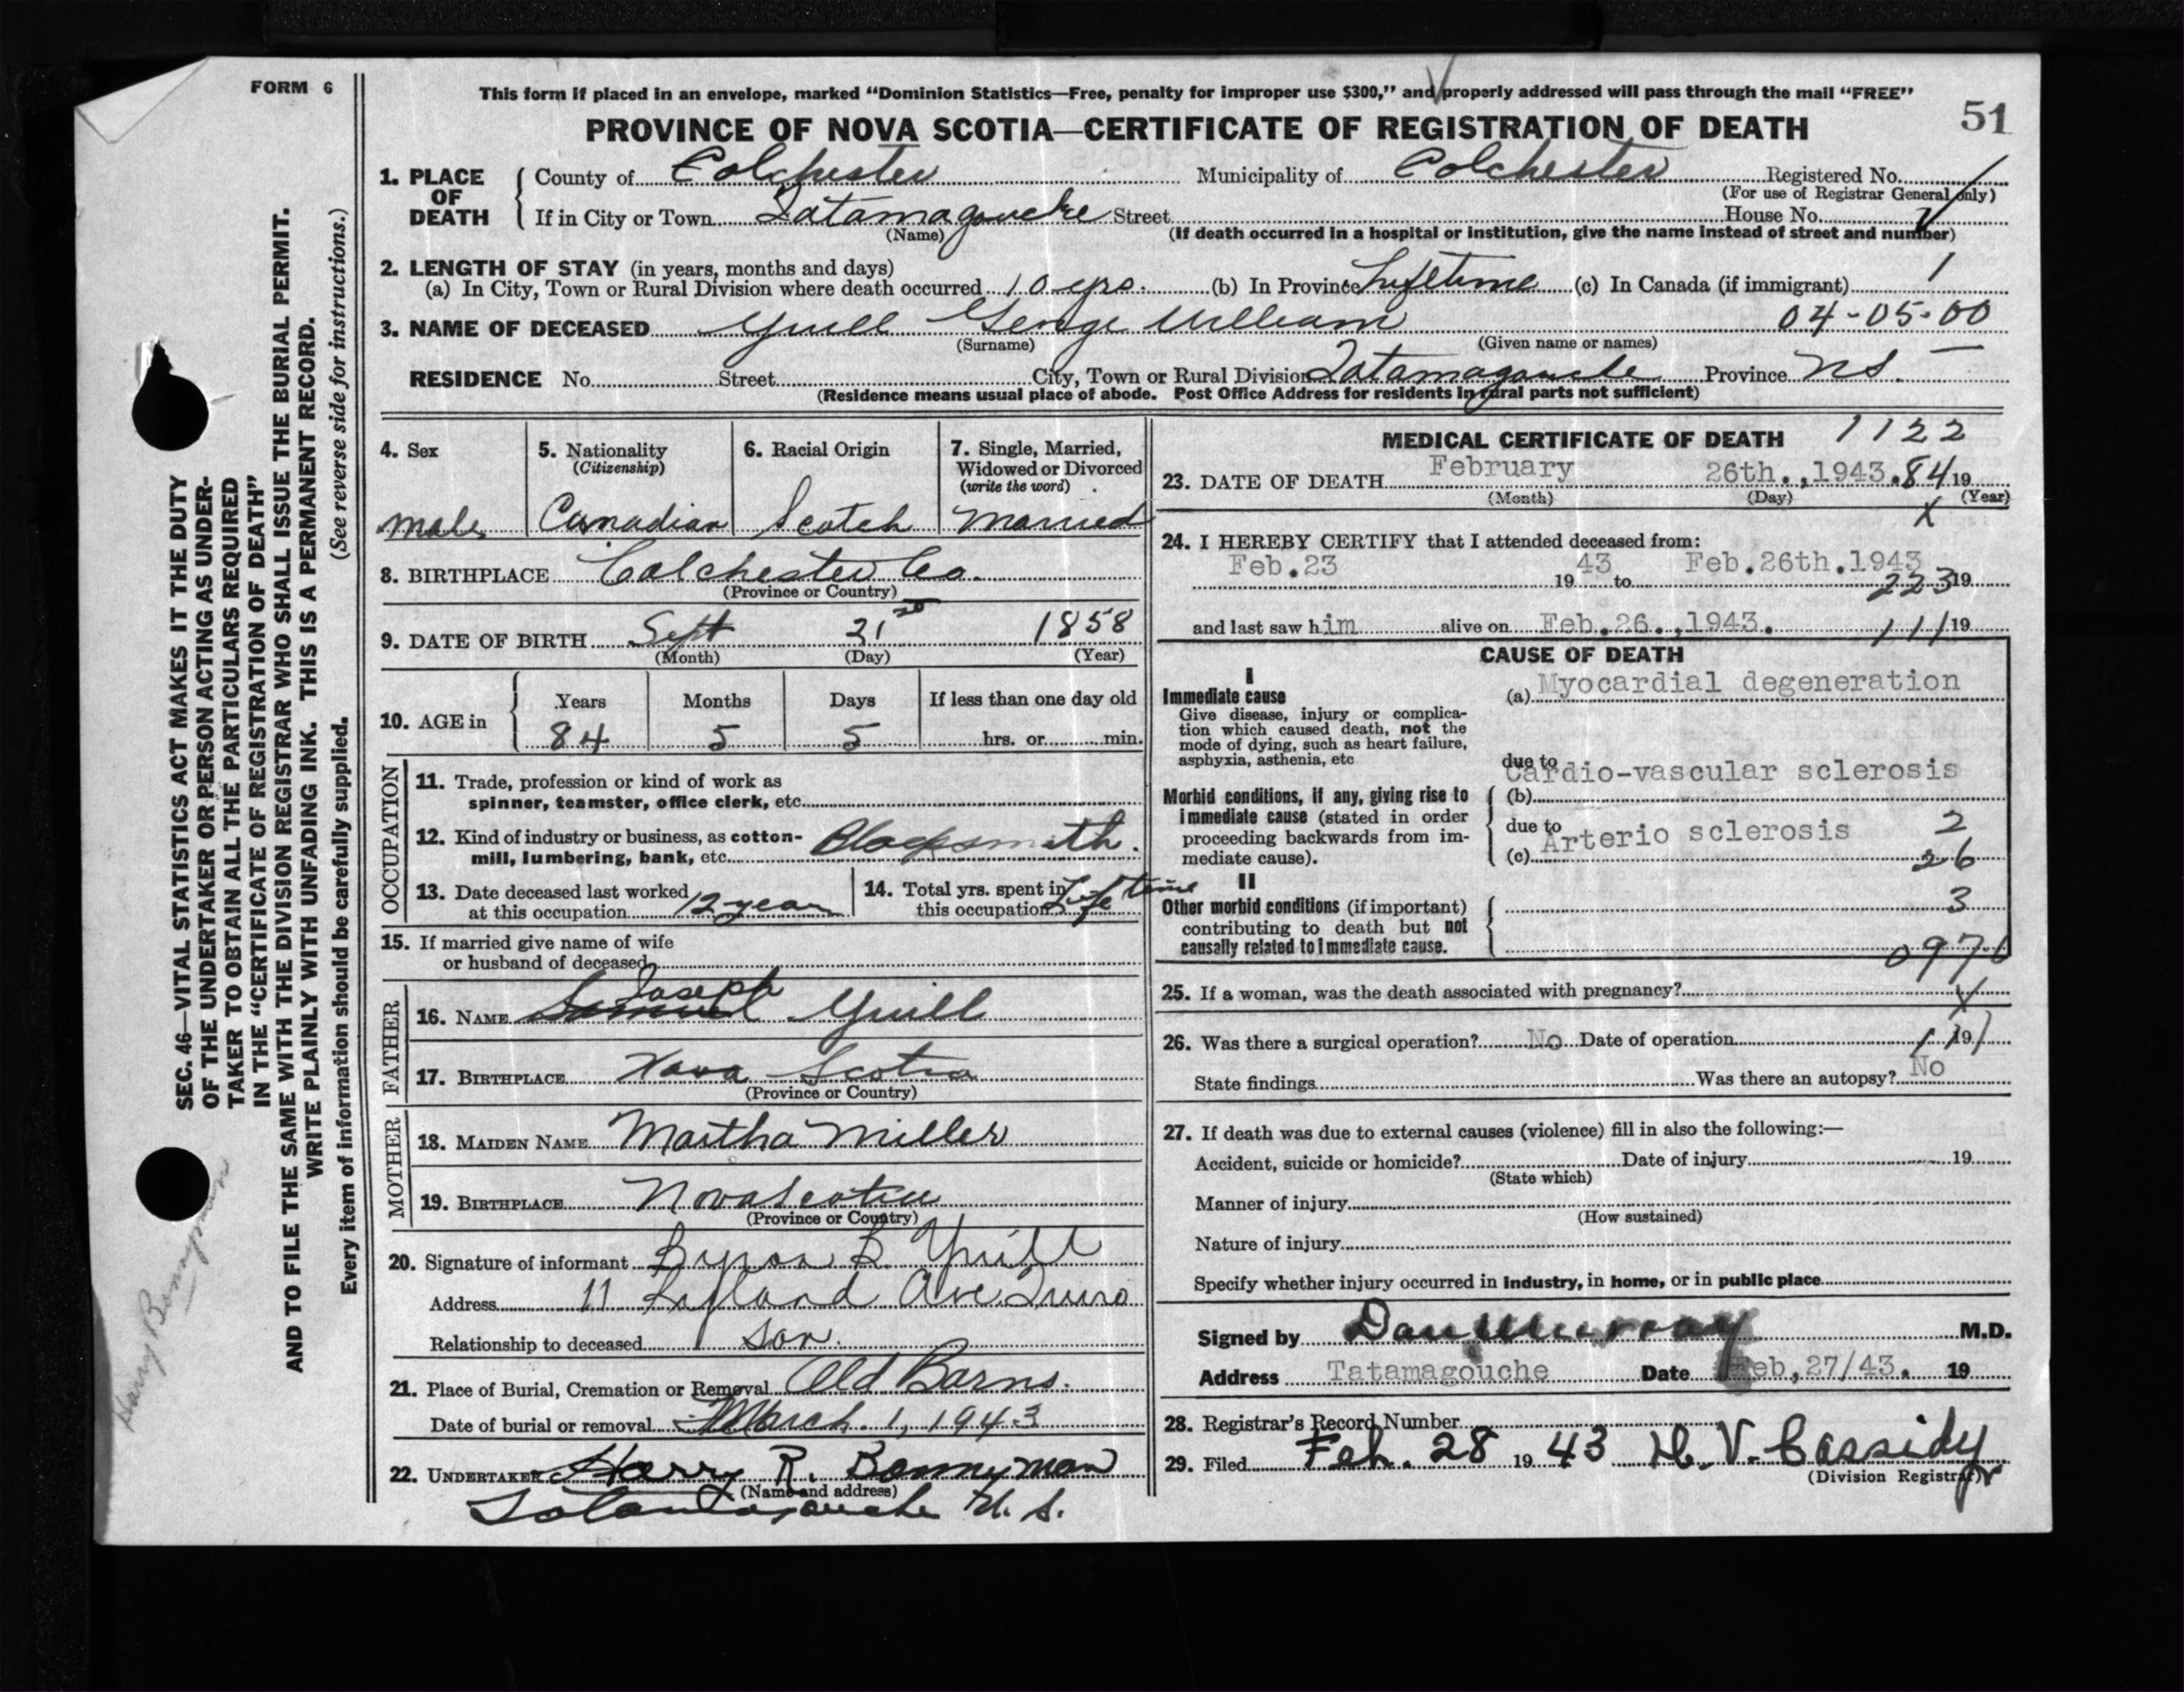 FORM 6
This form if placed in an envelope, marked “Dominion Statistics—Free, penalty for improper use $300,” and properly addressed will pass through the mail “FREE”
PROVINCE OF NOVA SCOTIA—CERTIFICATE OF REGISTRATION OF DEATH 51
1. PLACE OF DEATH
County of Colchester Municipality of Colchester Registered No.
(For use of Registrar General only)
If in City or Town Tatamagouche Street House No.
(Name) (If death occurred in a hospital or institution, give the name instead of street and number)
2. LENGTH OF STAY (in years, months and days)
(a) In City, Town or Rural Division where death occurred 10 yrs. (b) In Province Lifetime (c) In Canada (if immigrant) 1
3. NAME OF DECEASED Yuill George William 04-05-00
(Surname) (Given name or names)
RESIDENCE No. Street City, Town or Rural Division Tatamagouche Province N.S. —
(Residence means usual place of abode. Post Office Address for residents in rural parts not sufficient)
4. Sex male
5. Nationality (Citizenship) Canadian
6. Racial Origin Scotch
7. Single, Married, Widowed or Divorced (write the word) Married
8. BIRTHPLACE Colchester Co.
(Province or Country)
9. DATE OF BIRTH Sept 21 1858
(Month) (Day) (Year)
10. AGE in Years Months Days If less than one day old
84 5 5 hrs. or min.
OCCUPATION
11. Trade, profession or kind of work as
spinner, teamster, office clerk, etc.
12. Kind of industry or business, as cotton-
mill, lumbering, bank, etc. Blacksmith.
13. Date deceased last worked
at this occupation 12 year
14. Total yrs. spent in
this occupation Life time
15. If married give name of wife
or husband of deceased
FATHER
16. NAME Samuel Joseph Yuill
17. BIRTHPLACE Nova Scotia
(Province or Country)
MOTHER
18. MAIDEN NAME Martha Miller
19. BIRTHPLACE Nova Scotia
(Province or Country)
20. Signature of informant Byron B. Yuill
Address 11 Ave Truro
Relationship to deceased son.
21. Place of Burial, Cremation or Removal Old Barns.
Date of burial or removal March 1, 1943
22. UNDERTAKER Harry R. Bonnyman
(Name and address)
Tatamagouche N. S.
MEDICAL CERTIFICATE OF DEATH 1122
23. DATE OF DEATH February 26th., 1943. 84 19
(Month) (Day) (Year)
X
24. I HEREBY CERTIFY that I attended deceased from:
Feb.23 19 43 to Feb.26th.1943 223 19
and last saw him alive on Feb.26.,1943. 111 19
CAUSE OF DEATH
I
Immediate cause (a) Myocardial degeneration
Give disease, injury or complica-
tion which caused death, not the
mode of dying, such as heart failure,
asphyxia, asthenia, etc
due to
Cardio-vascular sclerosis
Morbid conditions, if any, giving rise to (b)
immediate cause (stated in order due to
proceeding backwards from im- Arterio sclerosis 2
mediate cause). (c) 26
II
Other morbid conditions (if important) 3
contributing to death but not
causally related to immediate cause. 0970
25. If a woman, was the death associated with pregnancy? X
26. Was there a surgical operation? No Date of operation 19
State findings Was there an autopsy? No
27. If death was due to external causes (violence) fill in also the following:—
Accident, suicide or homicide? Date of injury 19
(State which)
Manner of injury
(How sustained)
Nature of injury
Specify whether injury occurred in industry, in home, or in public place
Signed by Dan Murray M.D.
Address Tatamagouche Date Feb,27/43. 19
28. Registrar's Record Number
29. Filed Feb. 28 19 43 H. V. Cassidy
(Division Registrar)
SEC. 46—VITAL STATISTICS ACT MAKES IT THE DUTY
OF THE UNDERTAKER OR PERSON ACTING AS UNDER-
TAKER TO OBTAIN ALL THE PARTICULARS REQUIRED
IN THE “CERTIFICATE OF REGISTRATION OF DEATH”
AND TO FILE THE SAME WITH THE DIVISION REGISTRAR WHO SHALL ISSUE THE BURIAL PERMIT.
WRITE PLAINLY WITH UNFADING INK. THIS IS A PERMANENT RECORD.
Every item of information should be carefully supplied. (See reverse side for instructions.)
Harry Bonnyman